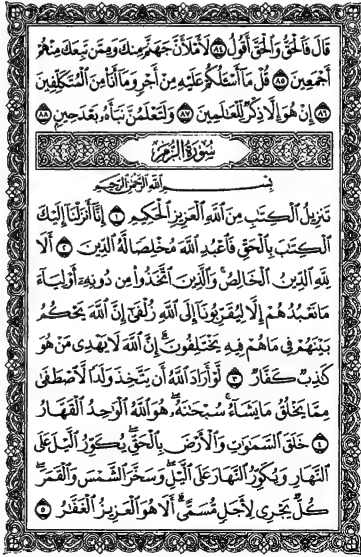 قَالَ فَٱلْحَقُّ وَٱلْحَقَّ أَقُولُ ۝٨٤ لَأَمْلَأَنَّ جَهَنَّمَ مِنكَ وَمِمَّن تَبِعَكَ مِنْهُمْ
أَجْمَعِينَ ۝٨٥ قُلْ مَآ أَسْـَٔلُكُمْ عَلَيْهِ مِنْ أَجْرٍ وَمَآ أَنَا۠ مِنَ ٱلْمُتَكَلِّفِينَ
۝٨٦ إِنْ هُوَ إِلَّا ذِكْرٌ لِّلْعَٰلَمِينَ ۝٨٧ وَلَتَعْلَمُنَّ نَبَأَهُۥ بَعْدَ حِينٍۭ ۝٨٨
سُورَةُ الزُّمَرِ
بِسْمِ ٱللَّهِ ٱلرَّحْمَٰنِ ٱلرَّحِيمِ
تَنزِيلُ ٱلْكِتَٰبِ مِنَ ٱللَّهِ ٱلْعَزِيزِ ٱلْحَكِيمِ ۝١ إِنَّآ أَنزَلْنَآ إِلَيْكَ
ٱلْكِتَٰبَ بِٱلْحَقِّ فَٱعْبُدِ ٱللَّهَ مُخْلِصًا لَّهُ ٱلدِّينَ ۝٢ أَلَا
لِلَّهِ ٱلدِّينُ ٱلْخَالِصُ ۚ وَٱلَّذِينَ ٱتَّخَذُوا۟ مِن دُونِهِۦٓ أَوْلِيَآءَ
مَا نَعْبُدُهُمْ إِلَّا لِيُقَرِّبُونَآ إِلَى ٱللَّهِ زُلْفَىٰٓ إِنَّ ٱللَّهَ يَحْكُمُ
بَيْنَهُمْ فِى مَا هُمْ فِيهِ يَخْتَلِفُونَ ۗ إِنَّ ٱللَّهَ لَا يَهْدِى مَنْ هُوَ
كَٰذِبٌ كَفَّارٌ ۝٣ لَّوْ أَرَادَ ٱللَّهُ أَن يَتَّخِذَ وَلَدًا لَّٱصْطَفَىٰ
مِمَّا يَخْلُقُ مَا يَشَآءُ ۚ سُبْحَٰنَهُۥ ۖ هُوَ ٱللَّهُ ٱلْوَٰحِدُ ٱلْقَهَّارُ
۝٤ خَلَقَ ٱلسَّمَٰوَٰتِ وَٱلْأَرْضَ بِٱلْحَقِّ ۖ يُكَوِّرُ ٱلَّيْلَ عَلَى
ٱلنَّهَارِ وَيُكَوِّرُ ٱلنَّهَارَ عَلَى ٱلَّيْلِ ۖ وَسَخَّرَ ٱلشَّمْسَ وَٱلْقَمَرَ ۖ
كُلٌّ يَجْرِى لِأَجَلٍ مُّسَمًّى ۗ أَلَا هُوَ ٱلْعَزِيزُ ٱلْغَفَّٰرُ ۝٥